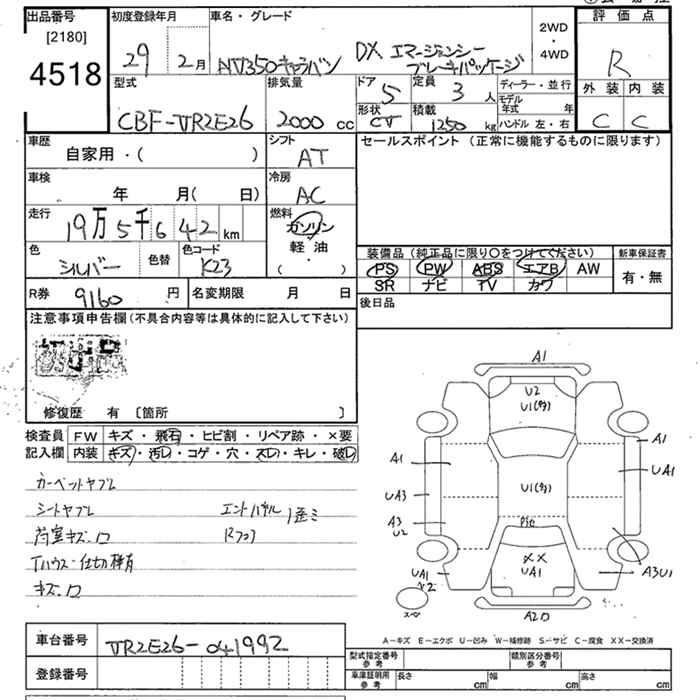 出品番号
[2180]
4518
初度登録年月
29年 2月
車名・グレード
NV350キャラバン
DX エマージェンシー
ブレーキパッケージ
2WD
・
4WD
評価点
R
外装 内装
C C
型式
CBF-VR2E26
排気量
2000 cc
ドア
5
定員
3 人
形状
CV
積載
1250 kg
ディーラー・並行
モデル年式 年
ハンドル 左・右
車歴
自家用・( )
シフト
AT
セールスポイント (正常に機能するものに限ります)
車検
年 月( 日)
冷房
AC
走行
19万5千642 km
燃料
ガソリン
軽油
( ・ )
色
シルバー
色替
色コード
K23
装備品 (純正品に限り〇をつけてください)
PS PW ABS エアB AW
SR ナビ TV カワ
新車保証書
有・無
R券
9160 円
名変期限 月 日
後日品
注意事項申告欄 (不具合内容等は具体的に記入して下さい)
修復歴 有 〔箇所 〕
検査員
記入欄
FW キズ・飛石・ヒビ割・リペア跡・×要
内装 キズ・汚レ・コゲ・穴・スレ・キレ・破レ
カーペットヤブレ
シートヤブレ
荷室キズ・ロ
Tハウス・仕切棒有
キズ・ロ
Rフック
A1
U2
U1(多)
A1
A1
UA1
U1(多)
UA3
A3
U2
××
UA1
UA1
×2
A3U1
A-キズ E-エクボ U-凹み W-補修跡 S-サビ C-腐食 XX-交換済
車台番号
VR2E26-041992
登録番号
型式指定番号
参考
類別区分番号
参考
車庫証明用
参考
長さ cm 幅 cm 高さ cm